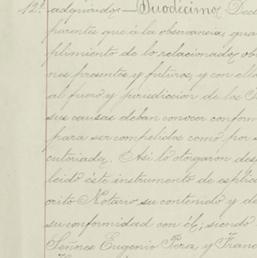 12ª. adquiridor — Duodécimo: Decl
parentes que á la observancia y cum
plimiento de lo relacionado obli
nes presentes y futuros, y con ello
al fuero y jurisdiccion de los S
sus causas deban conocer conform
para ser compelidos como por s
cutoriada. Asi lo otorgaron des
leido éste instrumento de esplic
crito Notario su contenido y de
su conformidad con él; siendo
Señores Eugenio Pera, y Franc